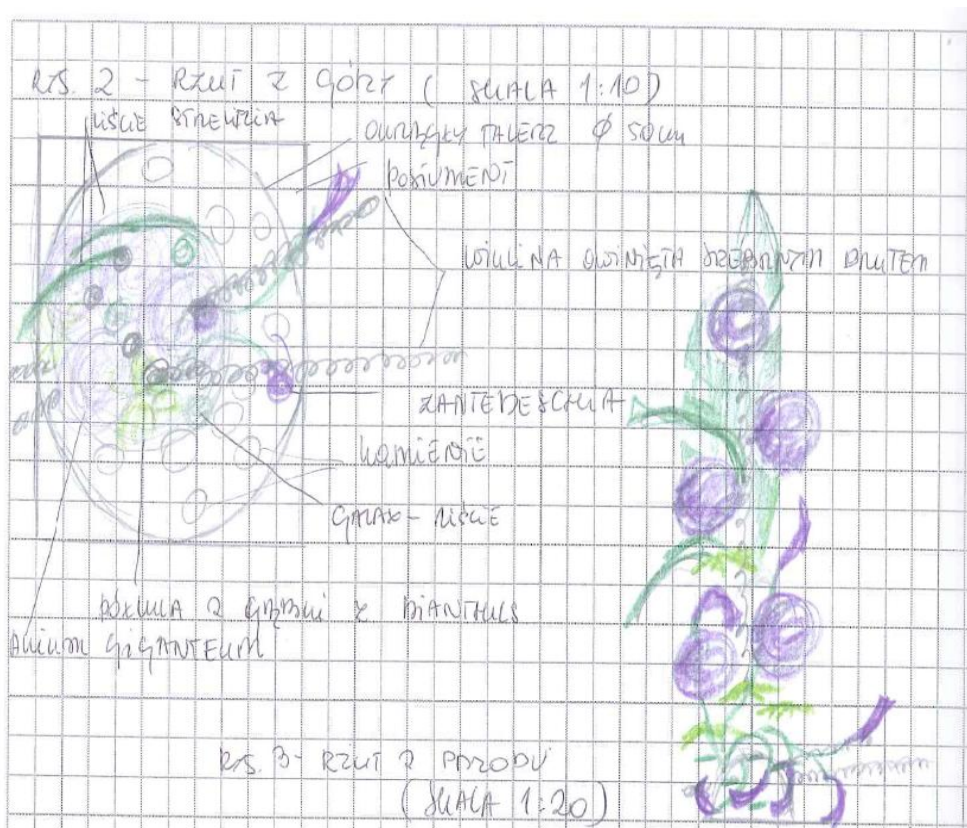 RYS. 2 - RZUT Z GÓRY ( SKALA 1:10)
LIŚCIE STRELITZIA
OKRĄGŁY TALERZ Ø 50cm
POSTUMENT
WIKLINA OWINIĘTA SREBRNYM DRUTEM
ZANTEDESCHIA
KAMIENIE
GALAX - LIŚCIE
PÓŁKULA Z GĄBKI Z DIANTHUS
ALLIUM GIGANTEUM
RYS. 3 - RZUT Z PRZODU
( SKALA 1:20)